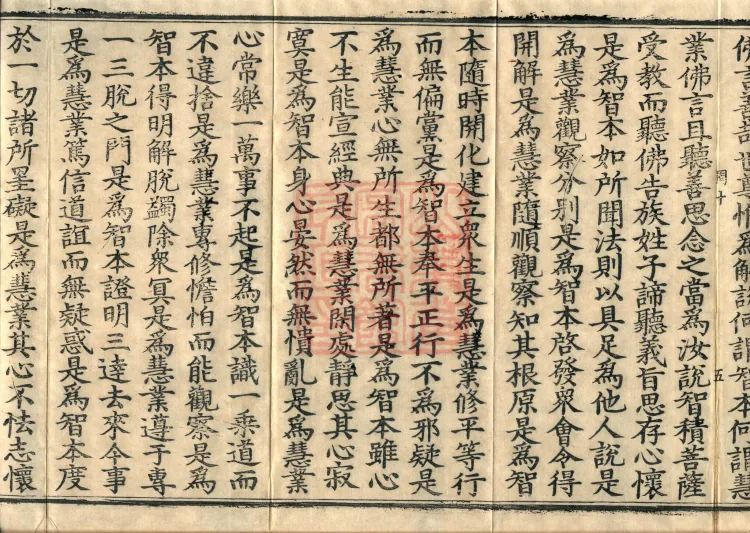 佛言善哉世尊惟爲解說何謂智本何謂慧
業佛言且聽善思念之當爲汝說智積菩薩
受教而聽佛告族姓子諦聽義旨思存心懷
是爲智本如所聞法則以具足爲他人說是
爲慧業觀察分別是爲智本啓發衆會令得
開解是爲慧業隨順觀察知其根原是爲智
本隨時開化建立衆生是爲慧業修平等行
而無偏黨是爲智本奉平正行不爲邪疑是
爲慧業心無所生都無所著是爲智本雖心
不生能宣經典是爲慧業閑處靜思其心寂
寞是爲智本身心晏然而無憒亂是爲慧業
心常樂一萬事不起是爲智本識一乗道而
不違捨是爲慧業專修憺怕而能觀察是爲
智本得明解脫蠲除衆冥是爲慧業遵于專
一三脫之門是爲智本證明三達去來今事
是爲慧業篤信道誼而無疑惑是爲智本度
於一切諸所罣礙是爲慧業其心不怯志懷
五